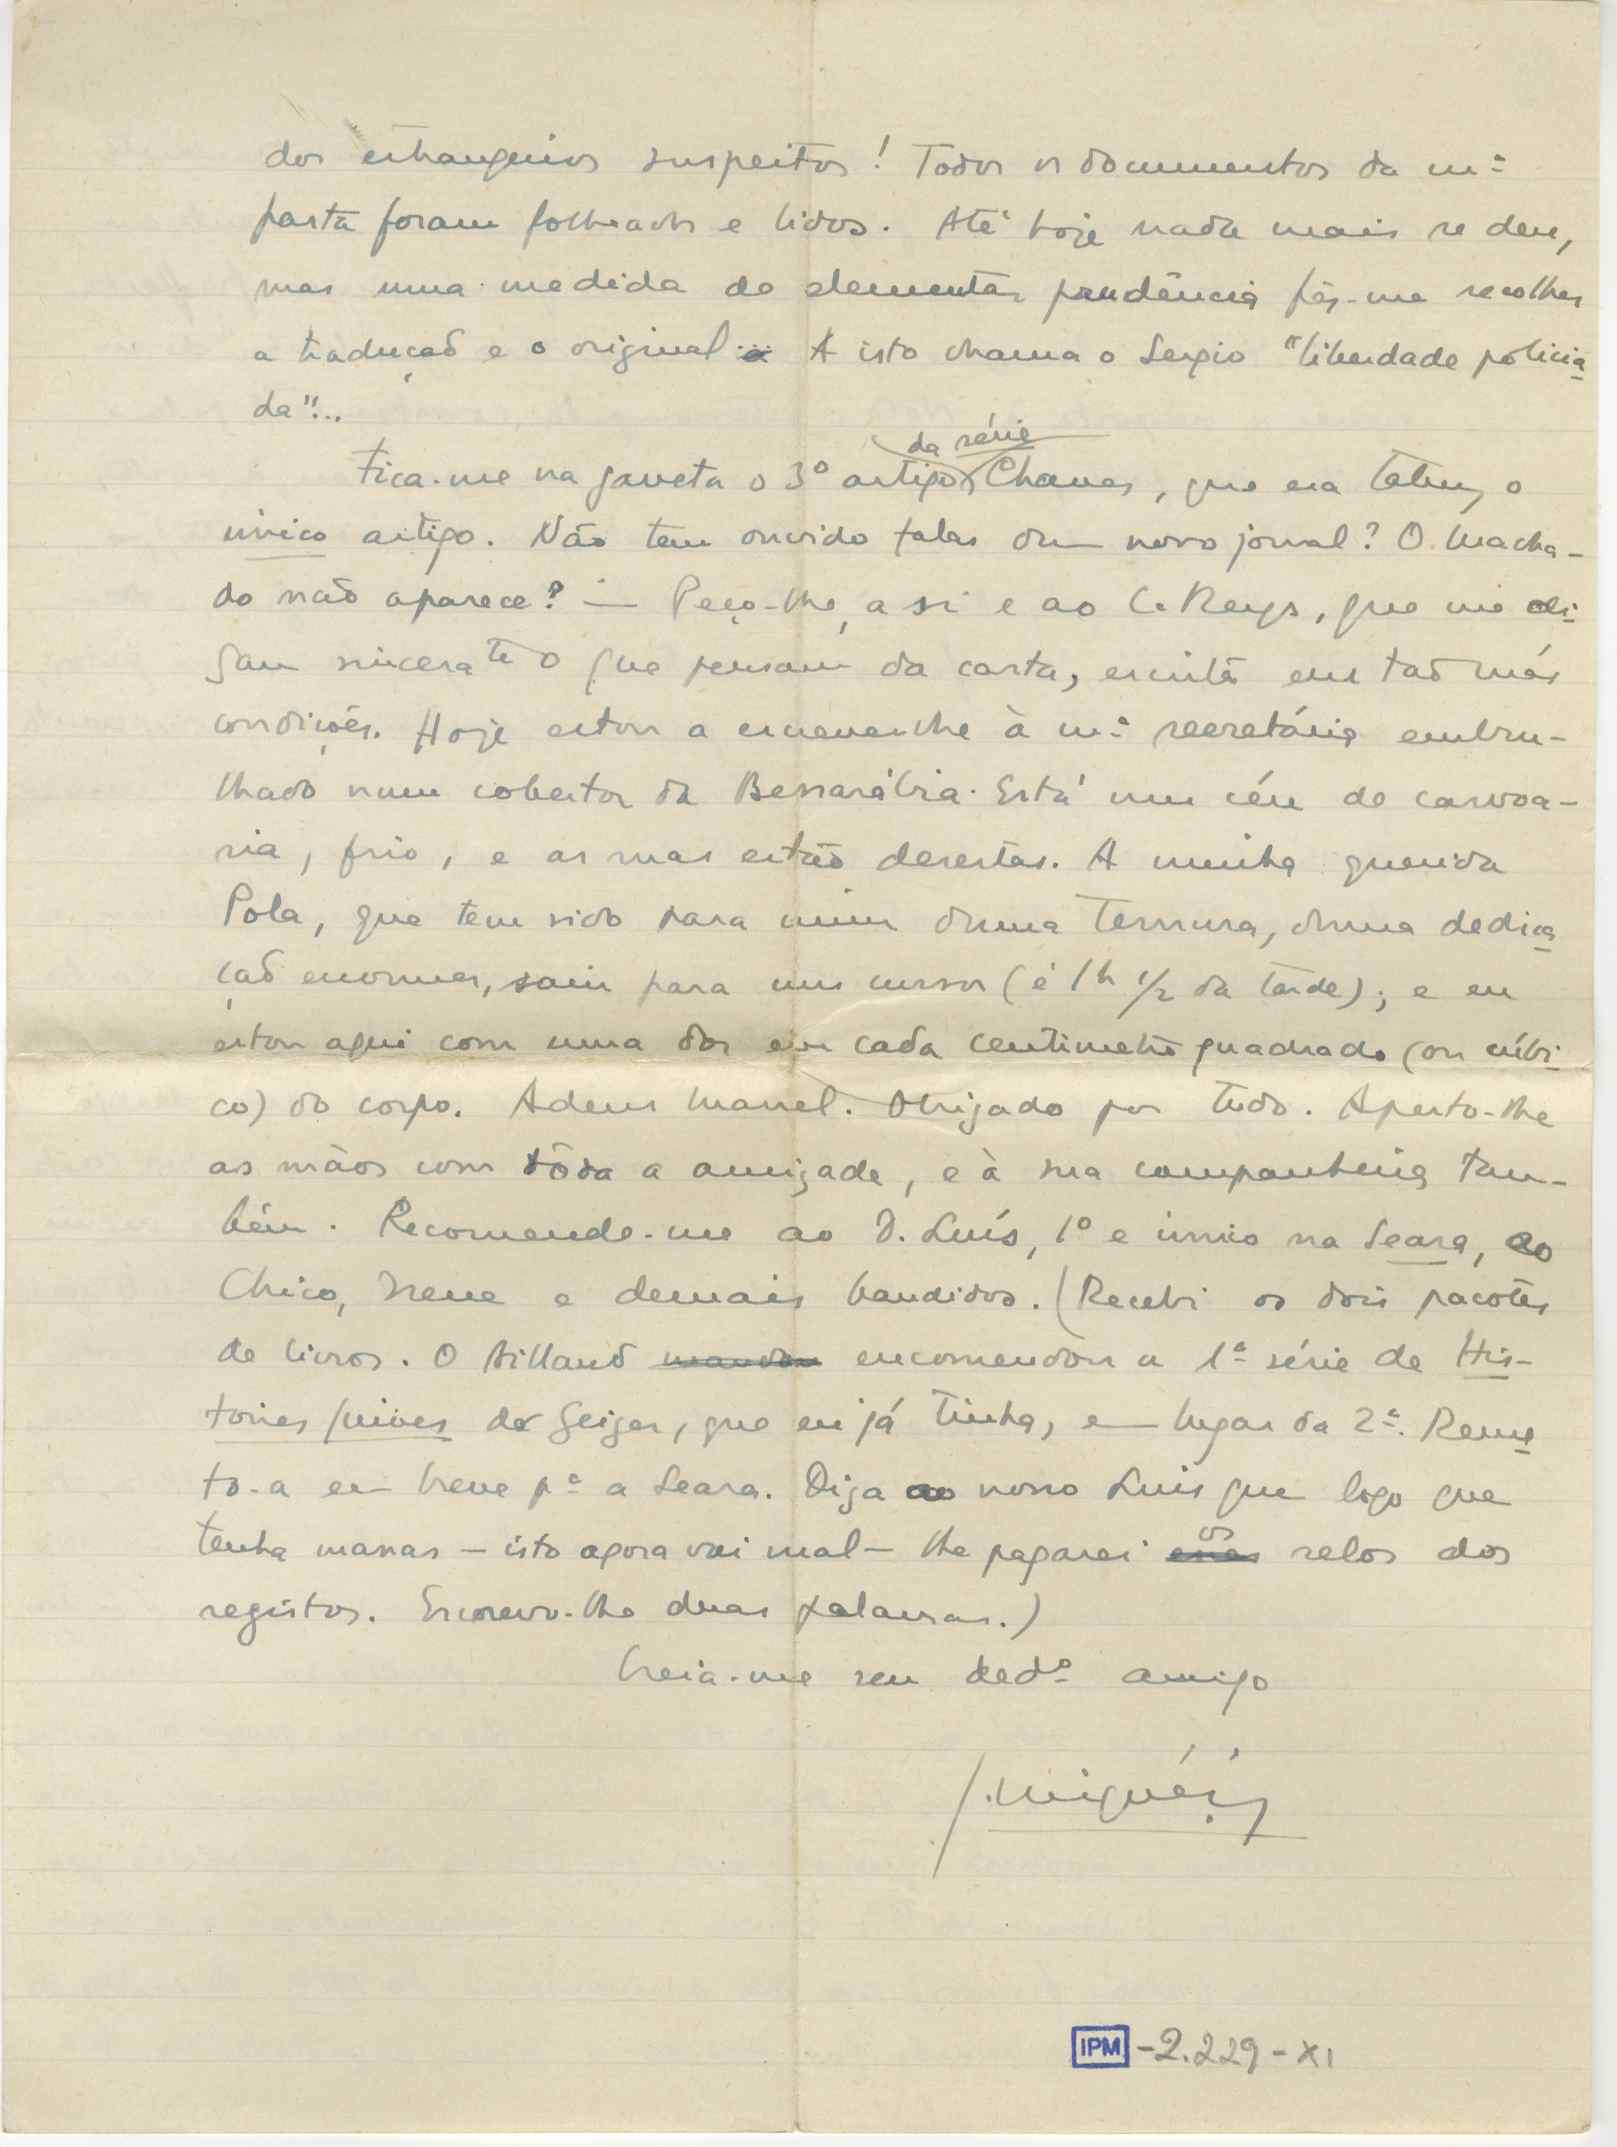 dos estrangeiros suspeitos! Todos os documentos da m.ª
pasta foram folheados e lidos. Até hoje nada mais se deu,
mas uma medida de elementar prudência fêz-me recolher
a traducçaõ e o original. A isto chama o Sergio "liberdade policia
da"...
da série
Fica-me na gaveta o 3º artigo Chaves, que era talvez o
único artigo. Não tem ouvido falar dum novo jornal? O Macha-
do naõ aparece? — Peço-lhe, a si e ao C. Reys, que me di-
gam sincerate o que pensam da carta, escrita em taõ más
condições. Hoje estou a escrever-lhe à m.ª secretária embru-
lhado num cobertor da Bessarábia. Está um céu de carvoa-
ria, frio, e as ruas estão desertas. A minha querida
Pola, que tem sido para mim duma ternura, duma dedica
çaõ enormes, saiu para uns cursos (é 1h 1/2 da tarde); e eu
estou aqui com uma dor em cada centimetro quadrado (ou cúbi-
co) do corpo. Adeus Manel. Obrigado por tudo. Aperto-lhe
as mãos com tôda a amizade, e à sua companheira tam-
bém. Recomende-me ao D. Luís, 1º e único na Seara, ao
Chico, Irene e demais bandidos. (Recebi os dois pacotes
de livros. O Aillaud mandou encomendou a 1ª série de His-
toires juives de Geiger, que eu já tinha, em lugar da 2ª. Reme
to-a em breve pª a Seara. Diga ao nosso Luis que logo que
tenha massas — isto agora vai mal — lhe pagarei os selos dos
registos. Escrevo-lhe duas palavras.)
Creia-me seu dedº amigo
J. Miguéis
IPM - 2.229 - XI